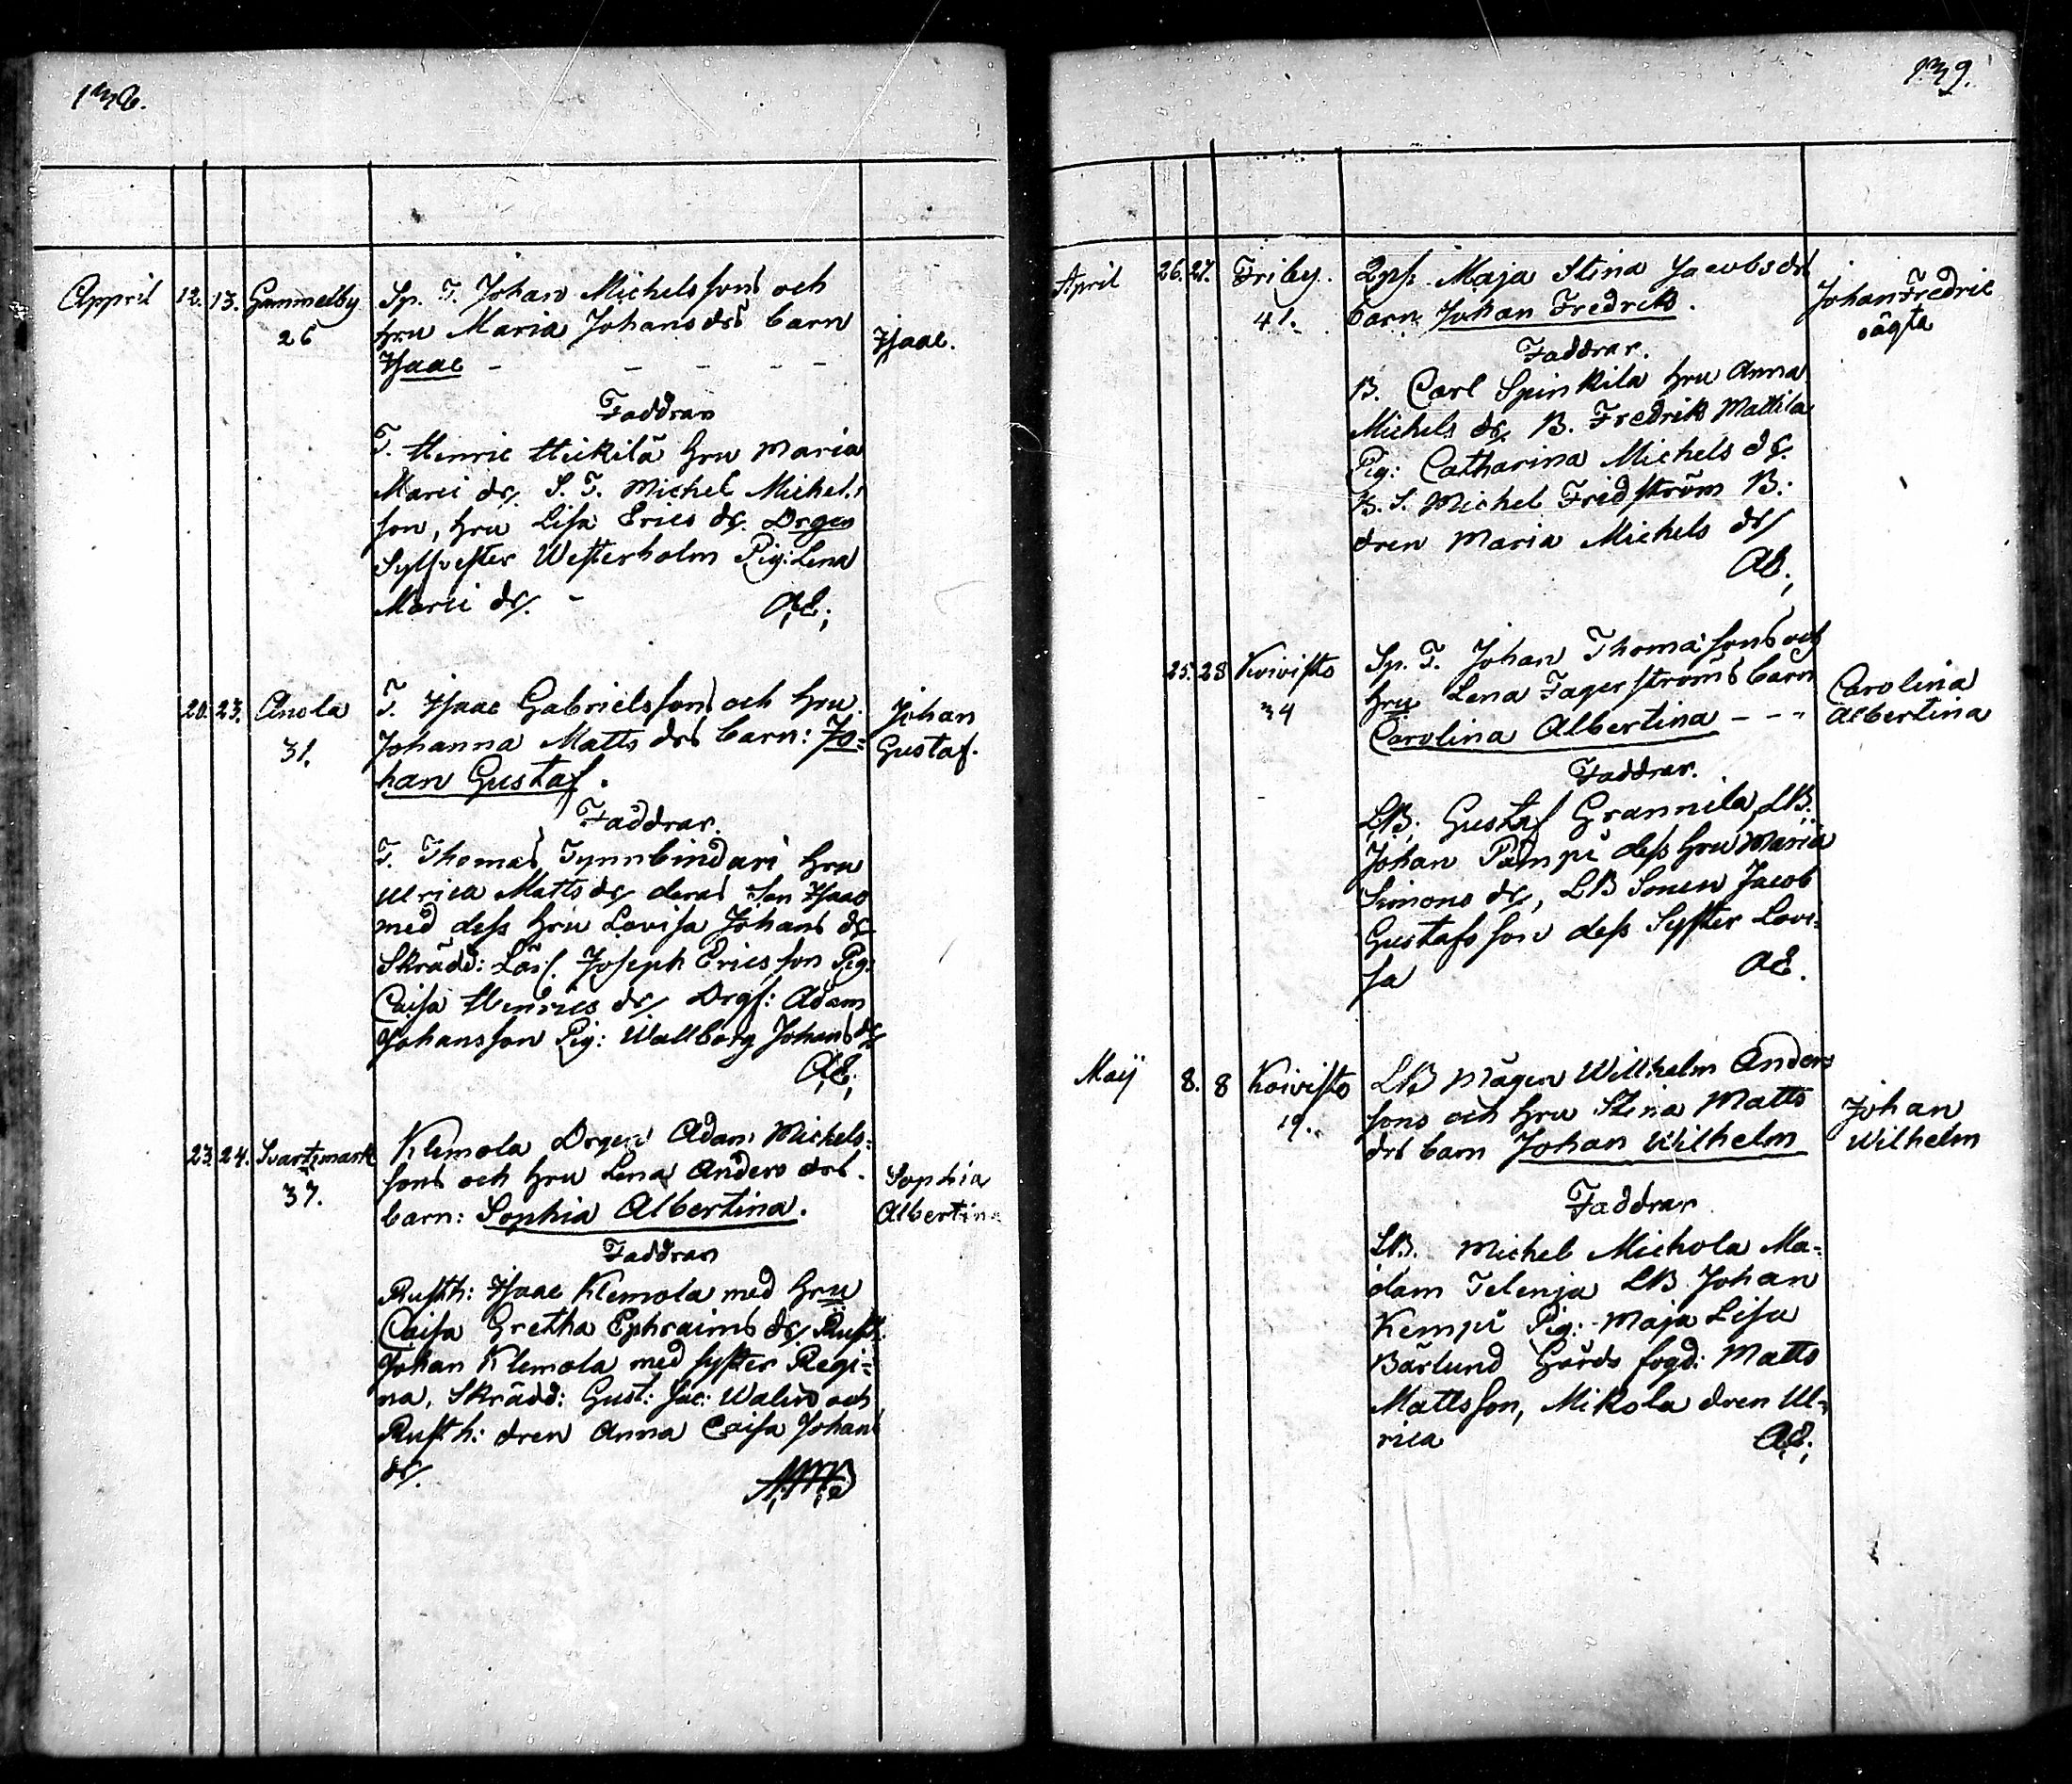 Appril 12. 13. Gammelby Sp. T. Johan Michelssons och
26 hru Maria Johans drs barn Isaac.
Isaac - - - - -
Faddrar
T. Henric Heickilä hru Maria
Marci dr, S. T. Michel Michels
son, hru Lisa Erics dr. Drgen
Sylvester Westerholm Pig: Lena
Marci dr. - AE;
20. 23. Anola T. Isaac Gabrielssons och hru Johan
31. Johanna Matts drs barn: Jo= Gustaf.
han Gustaf.
Faddrar.
T. Thomas Tynnbindari hru
Ulrica Matts dr deras Son Isaac
med dess hru Lovisa Johans dr
Skrädd: Joseph Ericsson Pig:
Caisa Henrics dr Drgs: Adam
Johansson Pig: Wallborg Johans dr
AE;
23. 24. Svartsmark Klemola Drgen Adam Michels=
37. sons och hru Lena Anders drs. Sophia
barn: Sophia Albertina. Albertina
Faddrar
Rusth: Isaac Klemola med hru
Caisa Gretha Ephraims dr, Rusth:
Johan Klemola med syster Regi=
na, Skrädd: Gust: Jac: Walin och
Rusth: dren Anna Caisa Johans
dr.
139.
April 26. 27. Friby. Qps. Maja Stina Jacobs drs Johan Fredric
41. barn Johan Fredrik. oägta
Faddrar.
B. Carl Spinkila hru Anna
Michels dr. B. Fredrik Mattila
Pig: Catharina Michels dr.
B. S. Michel Fridström B:
dren Maria Michels dr
AE;
25. 28 Koivisto Sp. T. Johan Thomasons och
34 hru Lena Fagerströms barn Carolina
Carolina Albertina - - - Albertina
Faddrar.
LB. Gustaf Grannila, LB.
Johan Pämpi dess hru Maria
Simons dr, LB Sonen Jacob
Gustafs son dess Syster Lovi=
sa AE.
Maij 8. 8 Koivisto LB Mågen Willhelm Anders
19. sons och hru Stina Matts Johan
drs barn Johan Wilhelm Wilhelm
Faddrar
LB. Michel Michola Ma=
dam Telenja LB Johan
Kempi Pig: Maja Lisa
Bärlund Gårds fogd: Matts
Mattsson, Mikola dren Ul=
rica AE;